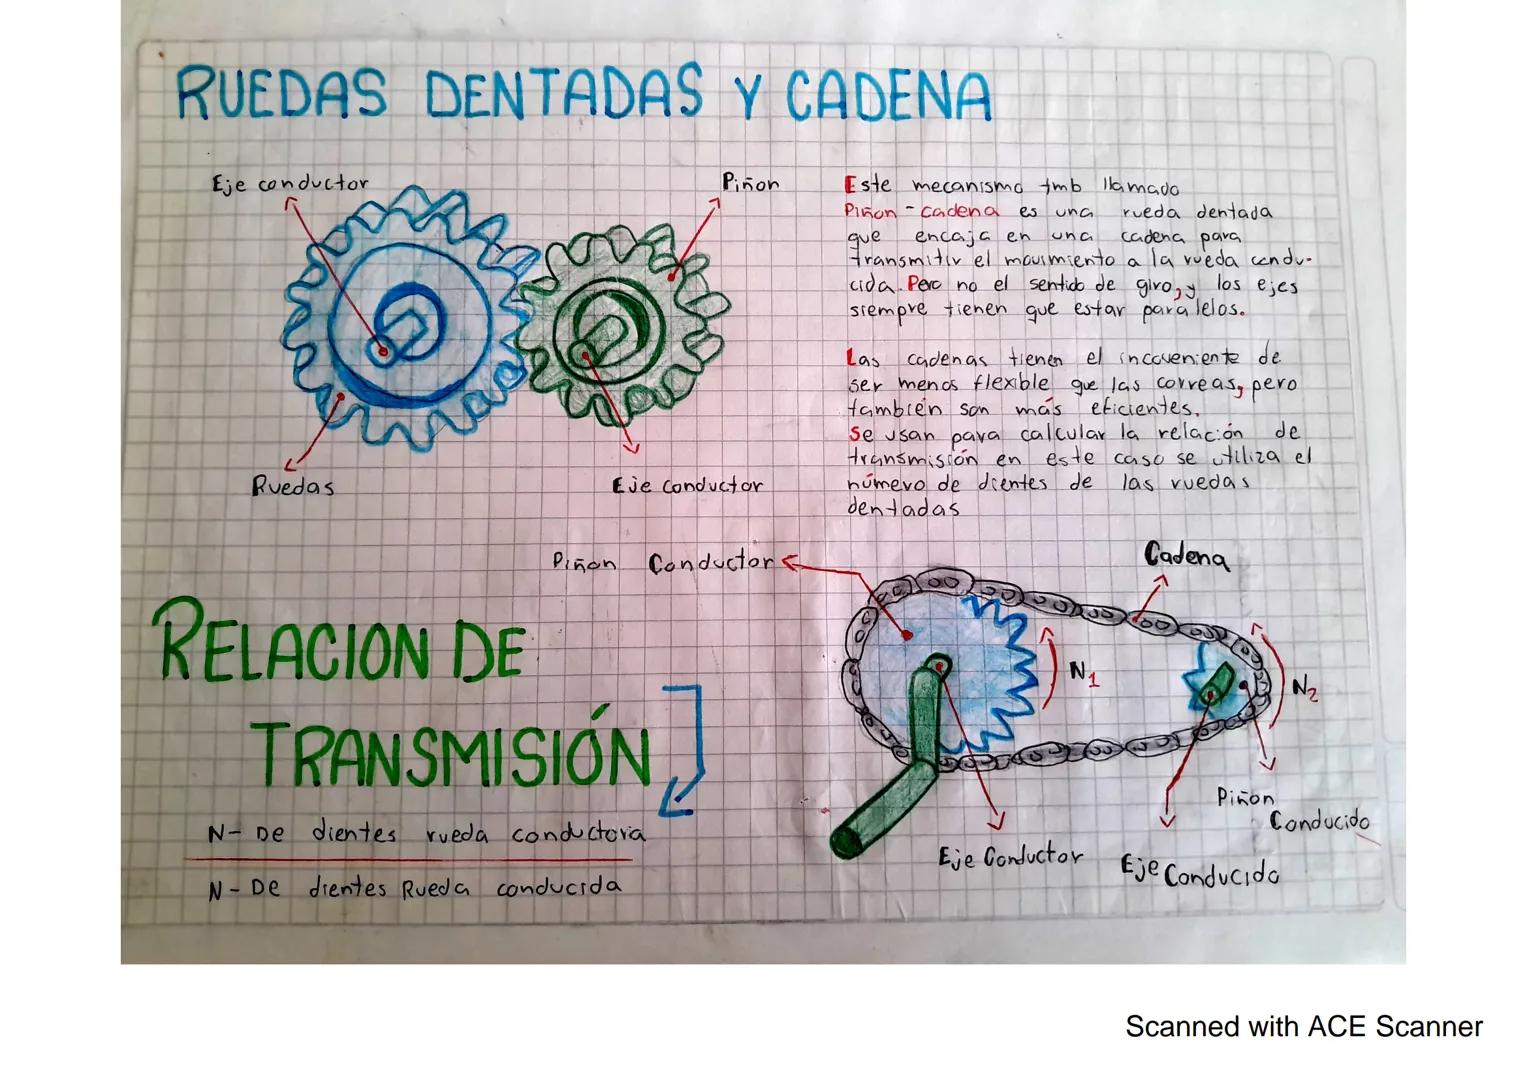 RUEDAS DENTADAS Y CADENA
Eje conductor
Piñon
Ruedas
Eje conductor
Este mecanismo tmb llamado
Piñon - cadena es una rueda dentada
que encaja en una cadena para
transmitir el movimiento a la rueda condu-
cida. Pero no el sentido de giro, y los ejes
siempre tienen que estar paralelos.
Las cadenas tienen el incoveniente de
ser menos flexible que las correas, pero
también son más eficientes.
Se usan para calcular la relación de
transmisión en este caso se utiliza el
número de dientes de las ruedas
dentadas
Piñon Conductor
Cadena
RELACION DE
TRANSMISIÓN
N- De dientes rueda conductora
N- De dientes Rueda conducida
N1
N2
Piñon
Conducido
Eje Conductor
Eje Conducido
Scanned with ACE Scanner